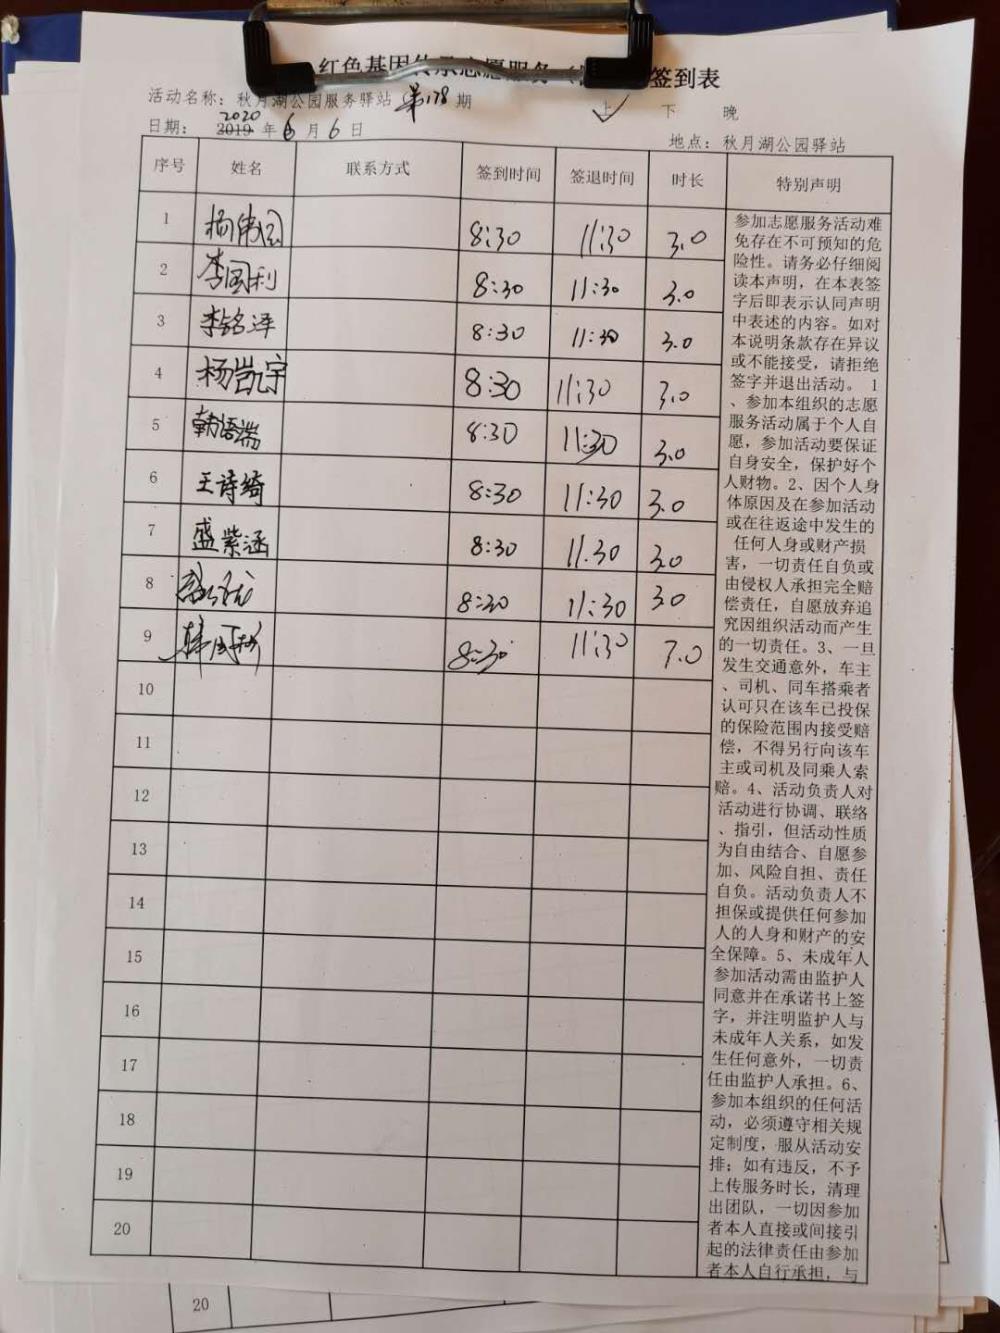 红色基因传承志愿服务（ 签到表
活动名称：秋月湖公园服务驿站 第178期 上 ✓ 下 晚
日期：2020 2019年6月6日 地点：秋月湖公园驿站
序号 姓名 联系方式 签到时间 签退时间 时长 特别声明
1 杨伟国 8:30 11:30 3.0
2 李国利 8:30 11:30 3.0
3 李铭泽 8:30 11:30 3.0
4 杨凯宇 8:30 11:30 3.0
5 韩语端 8:30 11:30 3.0
6 王诗绮 8:30 11:30 3.0
7 盛紫涵 8:30 11.30 3.0
8 8:30 11:30 3.0
9 8:30 11:30 7.0
10
11
12
13
14
15
16
17
18
19
20
参加志愿服务活动难
免存在不可预知的危
险性。请务必仔细阅
读本声明，在本表签
字后即表示认同声明
中表述的内容。如对
本说明条款存在异议
或不能接受，请拒绝
签字并退出活动。 1
、参加本组织的志愿
服务活动属于个人自
愿，参加活动要保证
自身安全，保护好个
人财物。2、因个人身
体原因及在参加活动
或在往返途中发生的
任何人身或财产损
害，一切责任自负或
由侵权人承担完全赔
偿责任，自愿放弃追
究因组织活动而产生
的一切责任。3、一旦
发生交通意外，车主
、司机、同车搭乘者
认可只在该车已投保
的保险范围内接受赔
偿，不得另行向该车
主或司机及同乘人索
赔。4、活动负责人对
活动进行协调、联络
、指引，但活动性质
为自由结合、自愿参
加、风险自担、责任
自负。活动负责人不
担保或提供任何参加
人的人身和财产的安
全保障。5、未成年人
参加活动需由监护人
同意并在承诺书上签
字，并注明监护人与
未成年人关系，如发
生任何意外，一切责
任由监护人承担。6、
参加本组织的任何活
动，必须遵守相关规
定制度，服从活动安
排；如有违反，不予
上传服务时长，清理
出团队，一切因参加
者本人直接或间接引
起的法律责任由参加
者本人自行承担，与
20